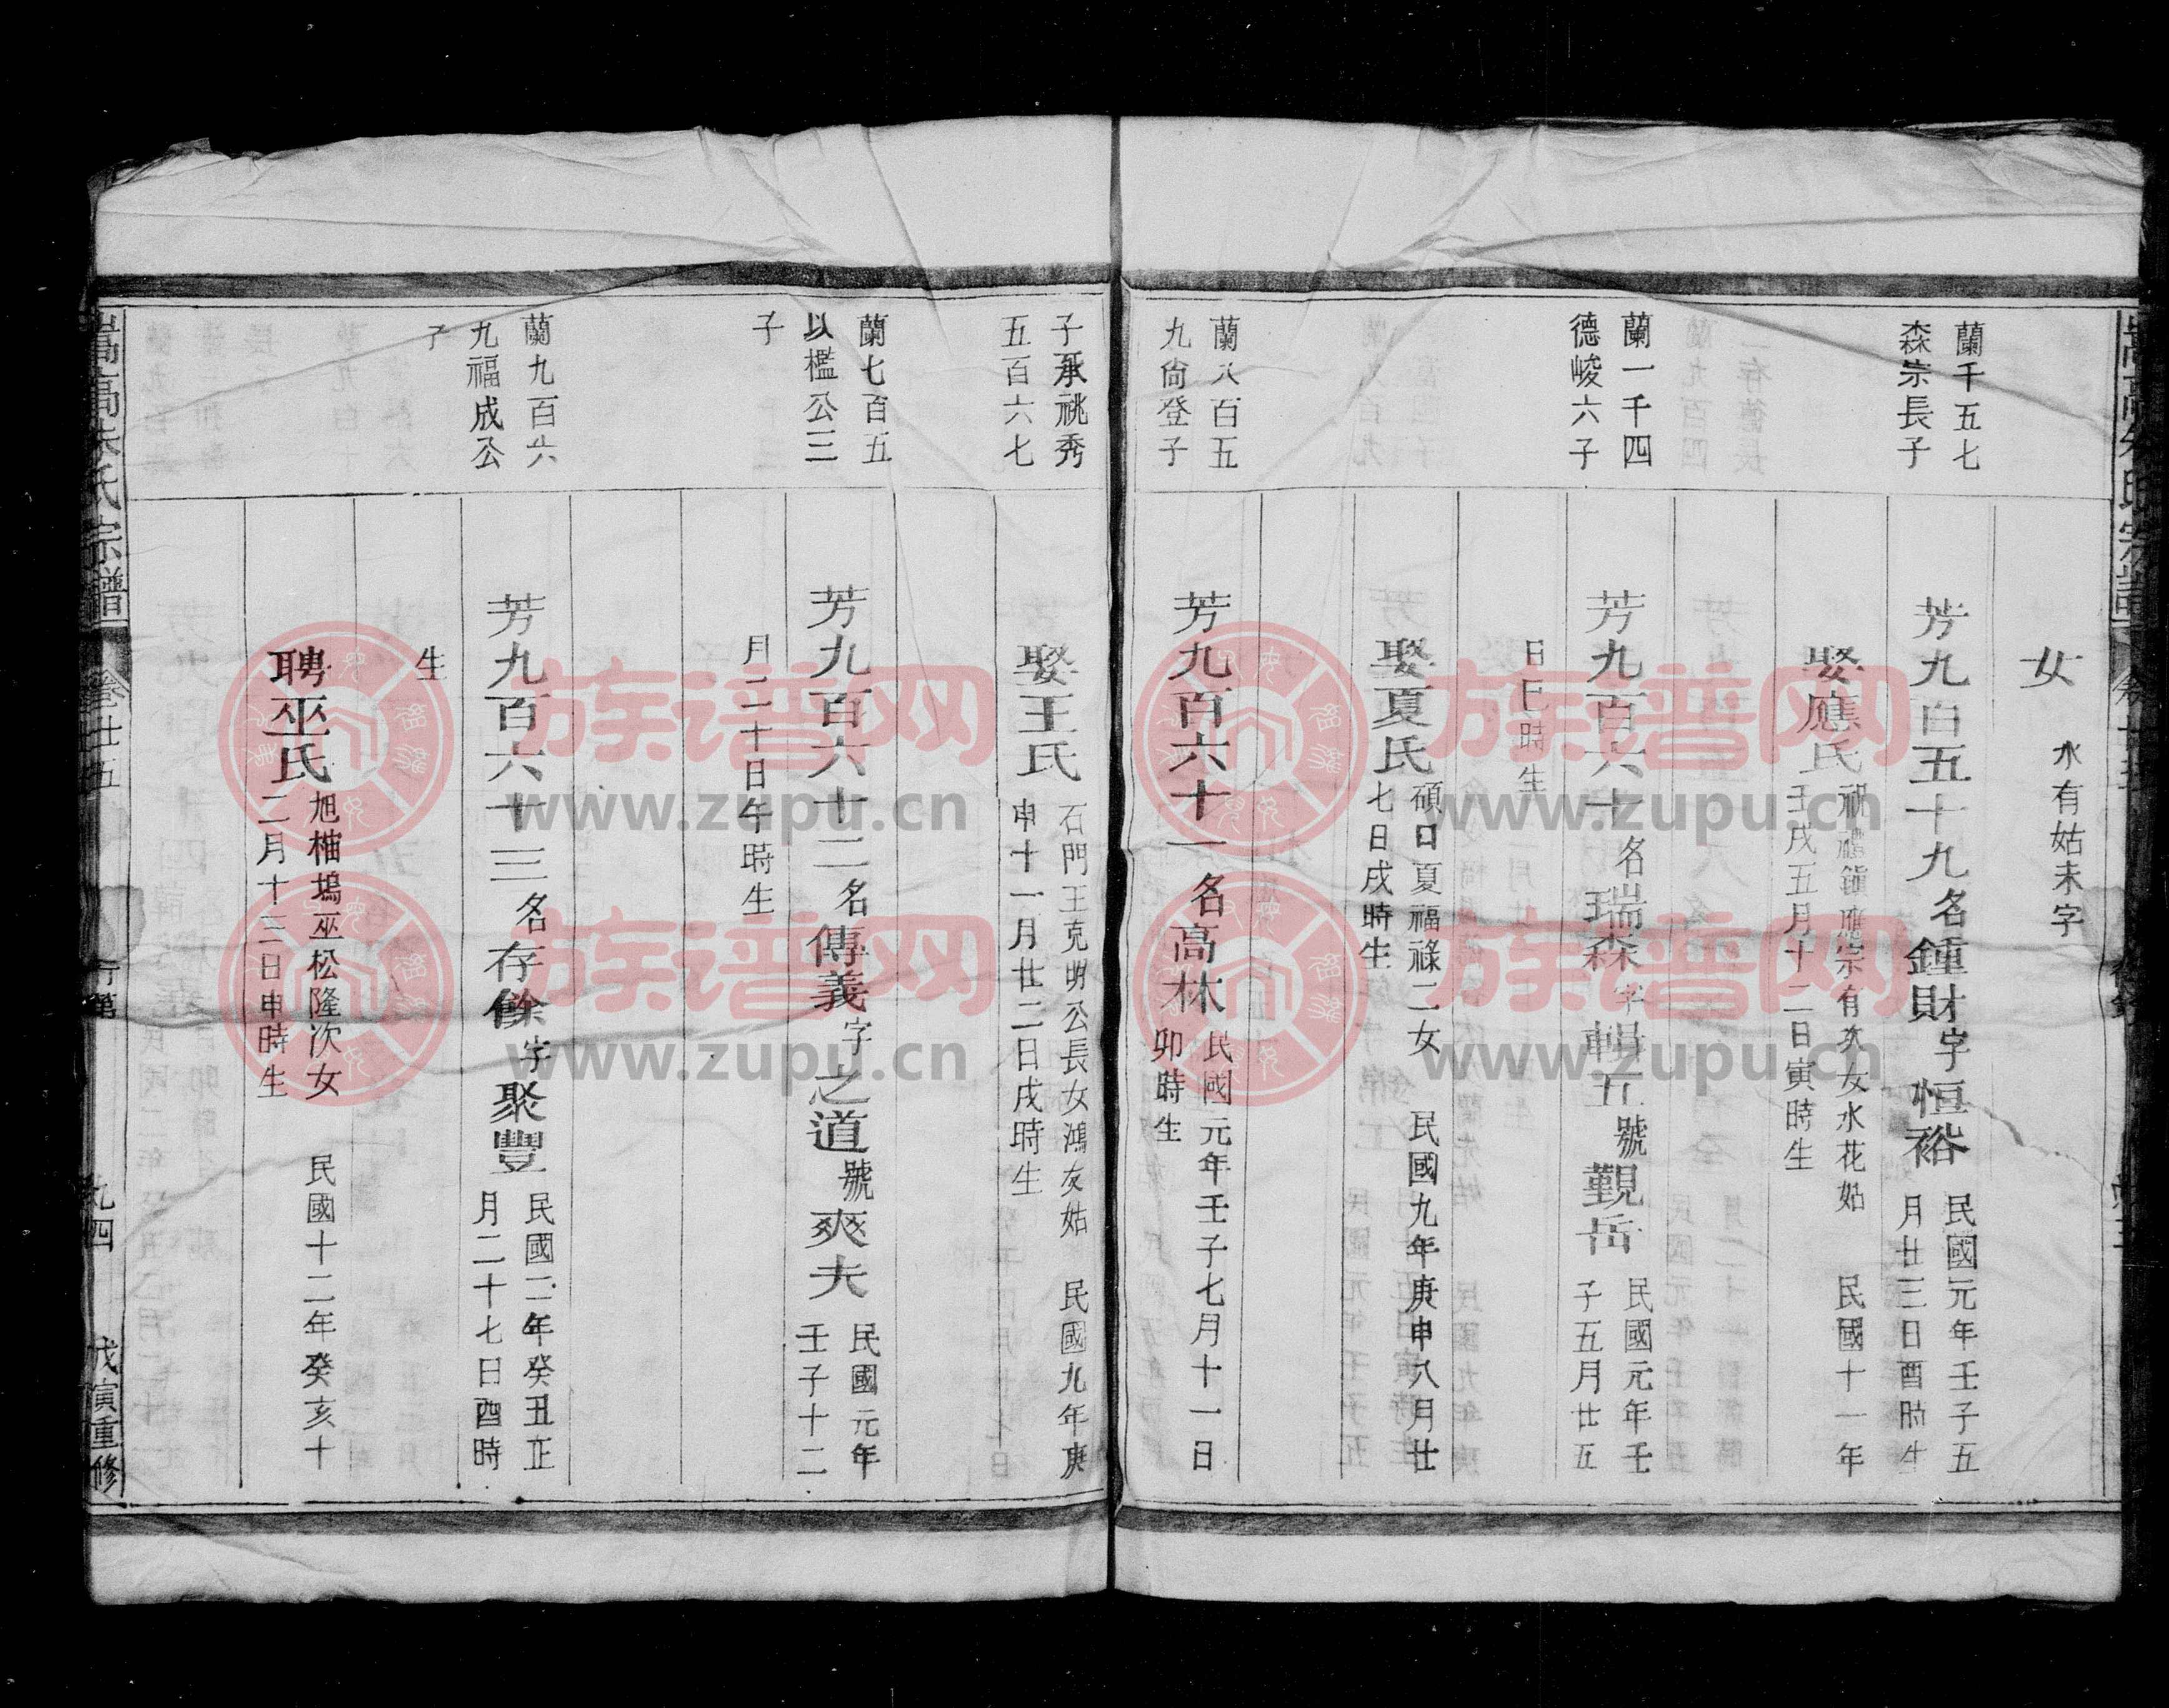 女 水有姑未字
蘭千五七
森宗長子
芳九百五十九名鍾財字恒裕 民國元年壬子五
月廿三日酉時生
娶應氏 祝禮鎮應宗有次女水花姑 民國十一年
壬戌五月十二日寅時生
蘭一千四
德峻六子
芳九百六十名瑞森字輯五號覲岳 民國元年壬
子五月廿五
日巳時生
娶夏氏 碩日夏福祿二女 民國九年庚申八月廿
七日戌時生
蘭八百五
九尙登子
芳九百六十一名高林 民國元年壬子七月十一日
卯時生
子承祧秀
五百六七
娶王氏 石門王克明公長女鴻友姑 民國九年庚
申十一月廿二日戌時生
蘭七百五
以檻公三
子
芳九百六十二名傳義字之道號爽夫 民國元年
壬子十二
月二十日午時生
蘭九百六
九福成公
子
芳九百六十三名存餘字聚豐 民國二年癸丑正
月二十七日酉時
生
聘巫氏 旭柚塢巫松隆次女 民國十二年癸亥十
二月十三日申時生
嵩高朱氏宗譜 卷廿五 行第 九四 戊寅重修
族谱网
www.zupu.cn
族谱网
www.zupu.cn
族谱网
www.zupu.cn
族谱网
www.zupu.cn